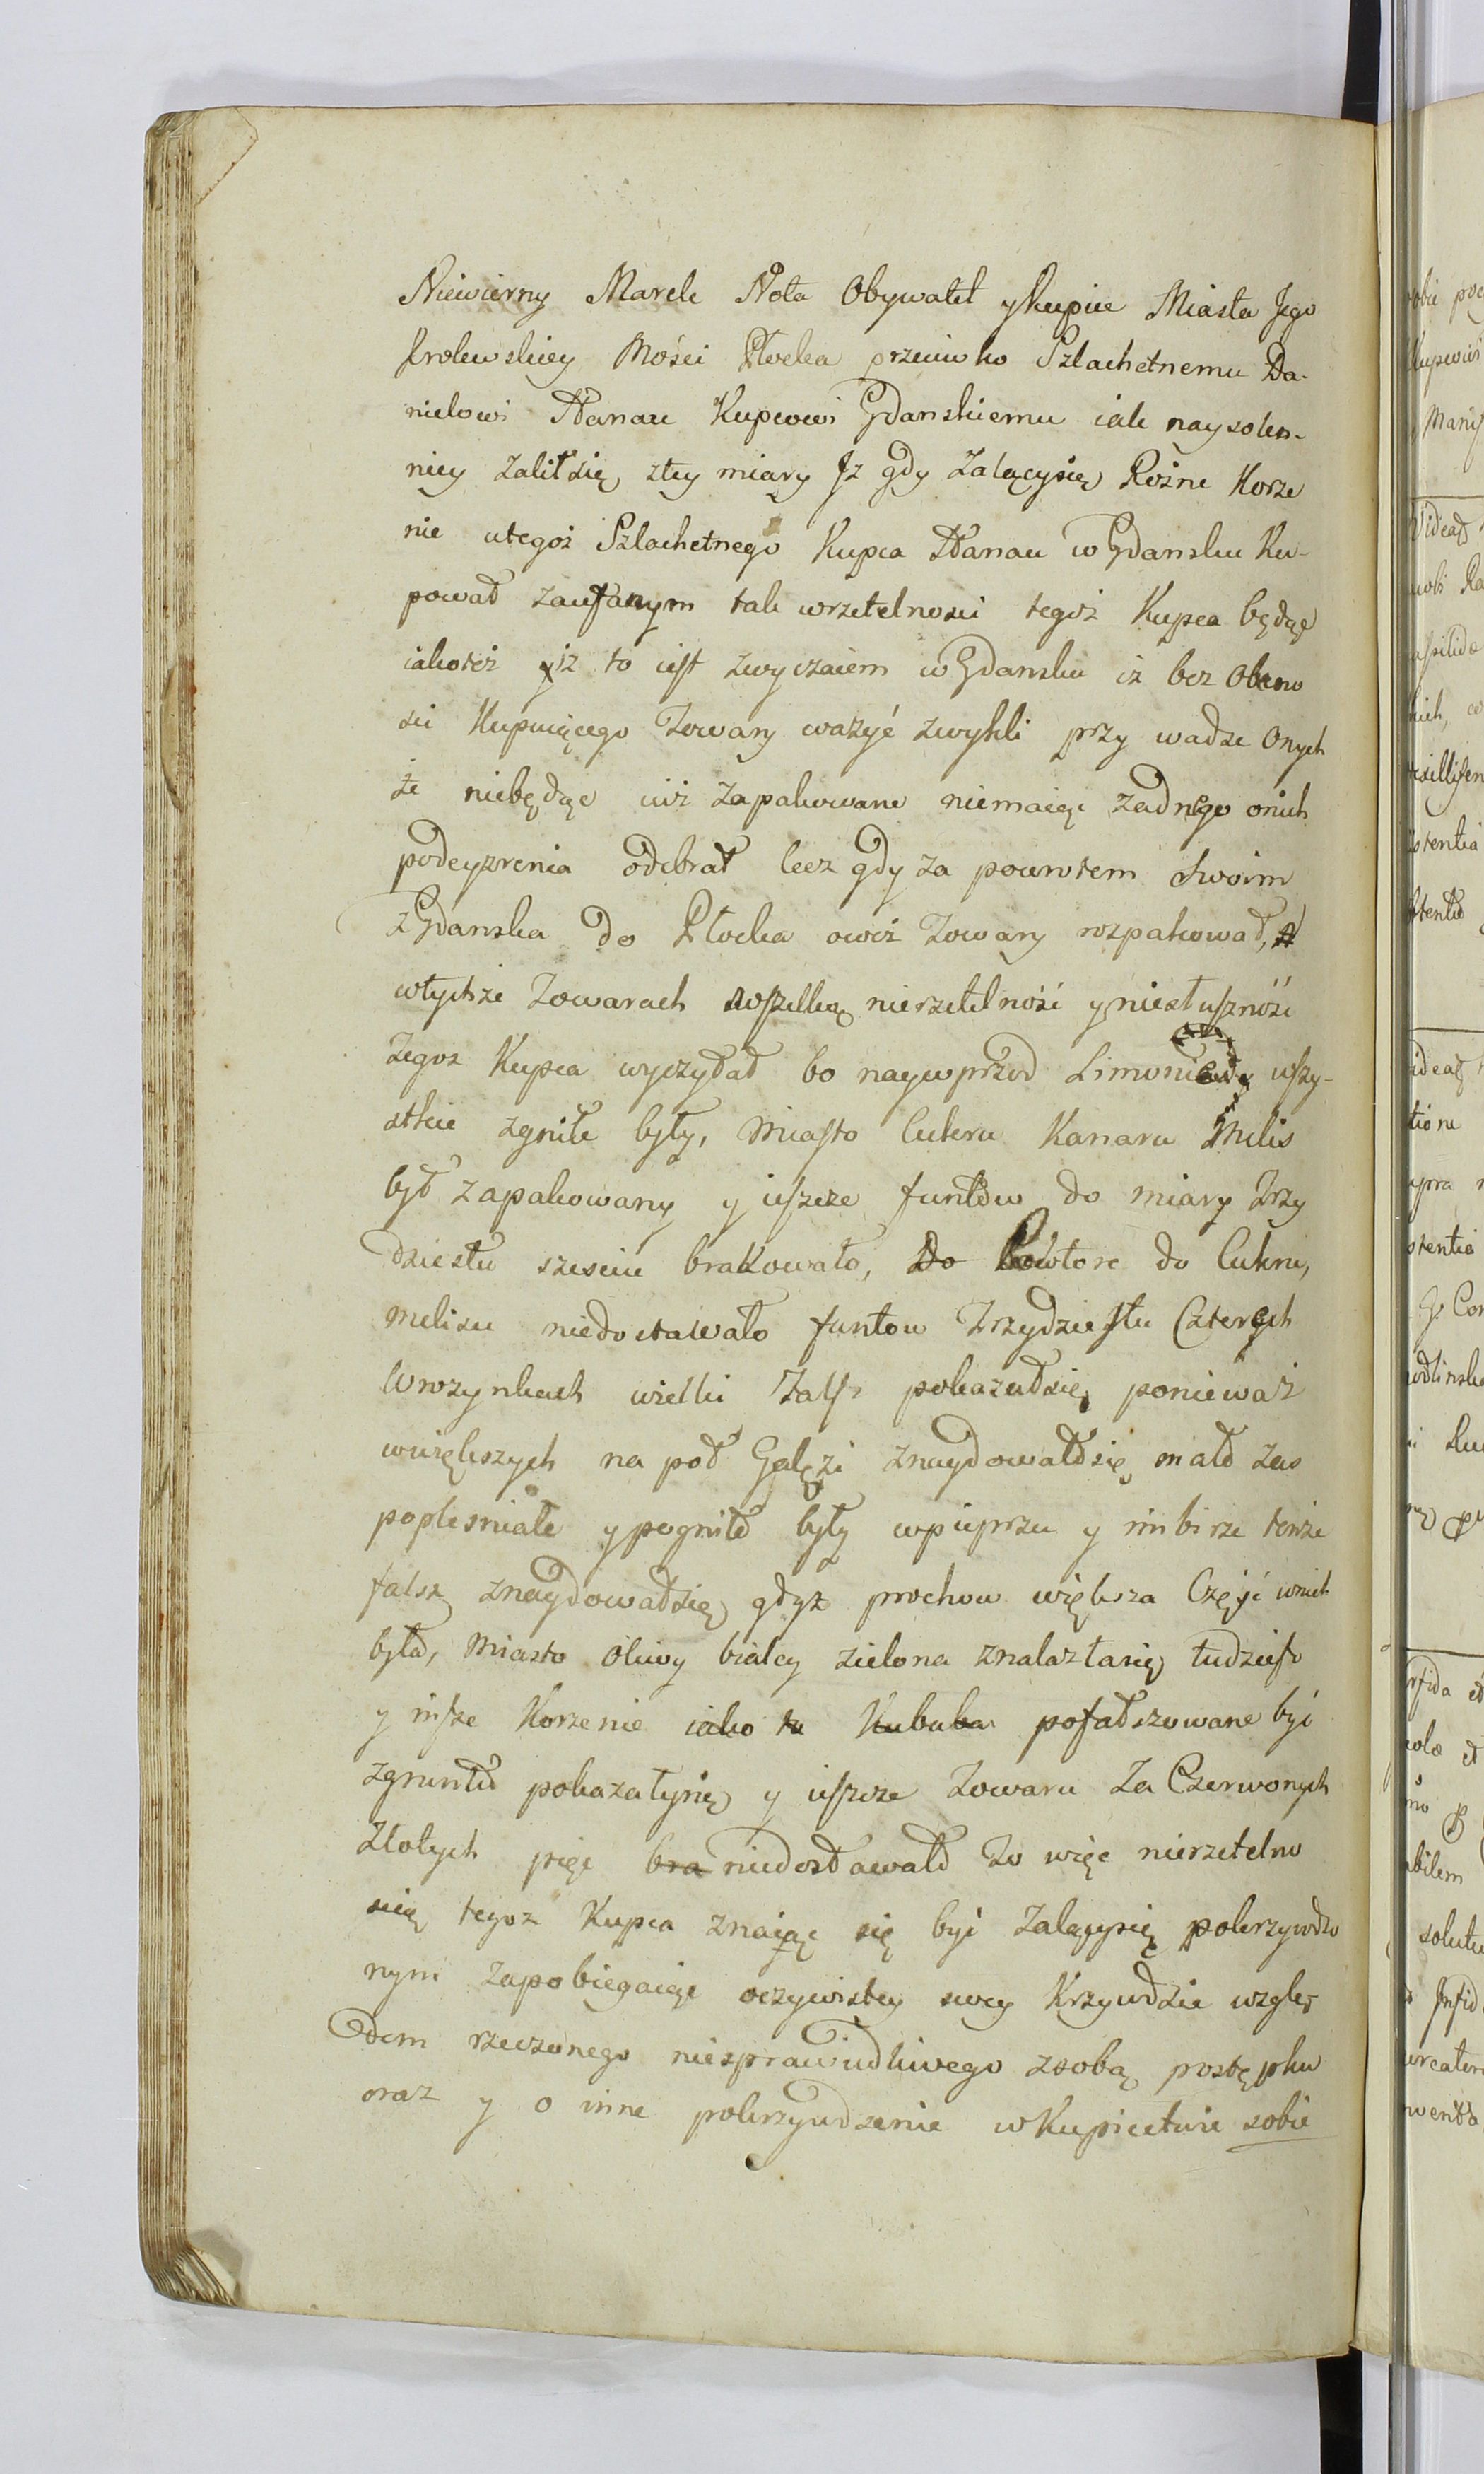 Niewierny Marek Nota Obywatel y kupiec Miasta Jego
krolewskiey Mości Płocka przeciwko Szlachetnemu Da-
nielowi Hanau Kupcowi Gdanskiemu iak naysolen-
niey żalił się ztey miary Jz gdy żalącysię Rożne Korze
nie utegoż Szlachetnego Kupca Hanau w Gdansku Ku-
pował zaufanym tak wrzetelnosci tegoż Kupca będąc
iakoteż iż to iest zwyczaiem w Gdansku iż bez Obecno
sci Kupuiącego Towary ważyć zwykli przy wadze Onych
że niebędąc iuż zapakowane niemaiąc żadnego onich
podeyzrenia odebrał lecz gdy za powrotem swoim
z Gdanska do Płocka oweż Towary rozpakował,
wtychże Towarach wszelką nierzetelność y niesłuszność
Tegoż Kupca wyczytał bo naywprzod Limonie wszy-
stkie zgniłe były, Miasto Cukru Kanaru Milis
był zapakowany y ieszcze funtow do miary Trzy
dziestu szesciu brakowało, Do Powtore do Cukru,
Melisu niedostawało funtow Trzydziestu Czterech
Wrozynkach wielki Fałsz pokazałsię ponieważ
wwiększych na poł Gałęzi znaydowałosię, małe zas
poplesniałe y pogniłe były wpieprzu y imbirze tenże
falsz znaydowałsię gdyż prochow większa Część wnich
była, Miasto oliwy białey zielona znalazłasię tudziesz
y insze Korzenie iako to Kubeba pofałszowane być
zgruntu pokazałysię y ieszcze Towaru Za Czerwonych
Złotych pięć bra niedostawało To więc nierzetelno
scią tegoż Kupca znaiąc się być żalącysię pokrzywdzo
nym zapobiegaiąc oczywistey swey Krzywdzie wzglę
dem rzeczonego niesprawiedliwego zsobą postępku
oraz y o inne pokrzywdzenie w Kupiectwie sobie